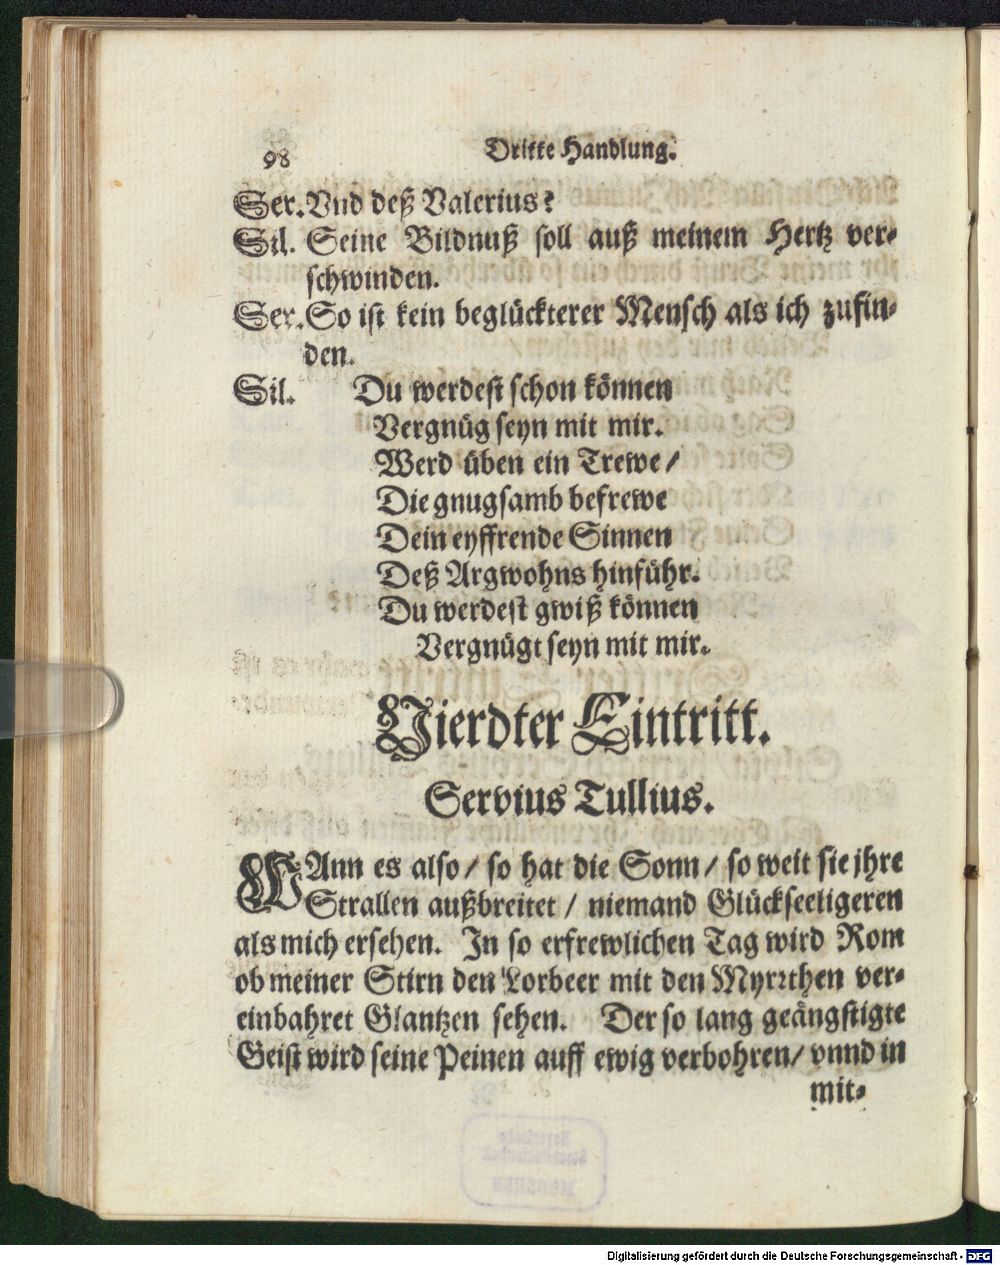 98 Dritte Handlung.
Ser. Vnd deß Valerius?
Sil. Seine Bildnuß soll auß meinem Hertz ver-
schwinden.
Ser. So ist kein beglückterer Mensch als ich zufin-
den.
Sil. Du werdest schon können
Vergnüg seyn mit mir.
Werd üben ein Trewe/
Die gnugsamb befrewe
Dein eyffrende Sinnen
Deß Argwohns hinführ.
Du werdest gwiß können
Vergnügt seyn mit mir.
Vierdter Eintritt.
Servius Tullius.
WAnn es also/ so hat die Sonn/ so weit sie jhre
Strallen außbreitet/ niemand Glückseeligeren
als mich ersehen. In so erfrewlichen Tag wird Rom
ob meiner Stirn den Lorbeer mit den Myrrthen ver-
einbahret Glantzen sehen. Der so lang geängstigte
Geist wird seine Peinen auff ewig verbohren/ vnnd in
mit-
Digitalisierung gefördert durch die Deutsche Forschungsgemeinschaft - DFG